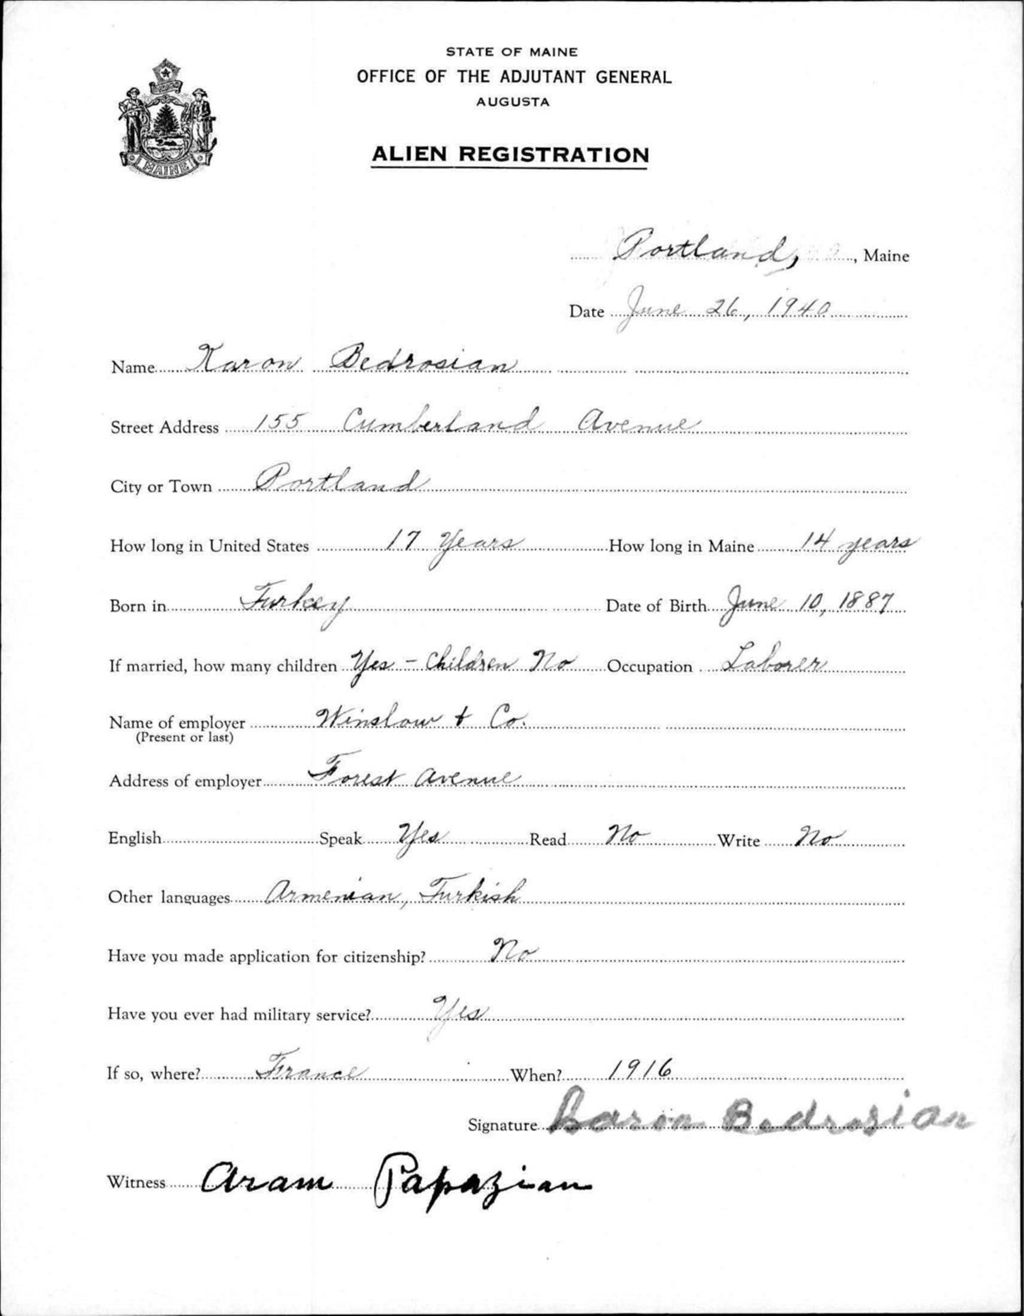 STATE OF MAINE
OFFICE OF THE ADJUTANT GENERAL
AUGUSTA
MAINE
ALIEN REGISTRATION
Portland, Maine
Date June 26, 1940
Name Karon Bedrosian
Street Address 155 Cumberland Avenue
City or Town Portland
How long in United States 17 Years How long in Maine 14 years
Born in Turkey Date of Birth June 10, 1887
If married, how many children Yes - Children No Occupation Laborer
Name of employer Winslow & Co.
(Present or last)
Address of employer Forest Avenue
English Speak Yes Read No Write No
Other languages Armenian, Turkish
Have you made application for citizenship? No
Have you ever had military service? Yes
If so, where? France When? 1916
Signature Bedrosian
Witness Aram Papazian